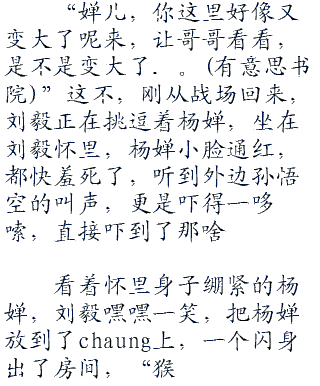 “婵儿，你这里好像又
变大了呢来，让哥哥看看，
是不是变大了．。(有意思书
院)”这不，刚从战场回来，
刘毅正在挑逗着杨婵，坐在
刘毅怀里，杨婵小脸通红，
都快羞死了，听到外边孙悟
空的叫声，更是吓得一哆
嗦，直接吓到了那啥
看着怀里身子绷紧的杨
婵，刘毅嘿嘿一笑，把杨婵
放到了chaung上，一个闪身
出了房间，“猴